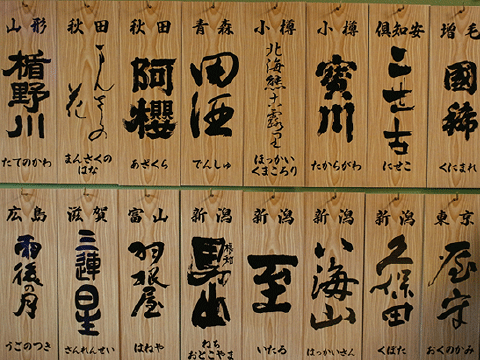 山形
楯野川
たてのかわ
秋田
まんさくの
花
まんさくの
はな
秋田
阿櫻
あざくら
青森
田酒
でんしゅ
小樽
北海熊古露里
ほっかい
くまころり
小樽
寳川
たからがわ
倶知安
二世古
にせこ
増毛
國稀
くにまれ
広島
雨後の月
うごのつき
滋賀
三連星
さんれんせい
富山
羽根屋
はねや
新潟
根知
男山
ねち
おとこやま
新潟
至
いたる
新潟
八海山
はっかいさん
新潟
久保田
くぼた
東京
屋守
おくのかみ